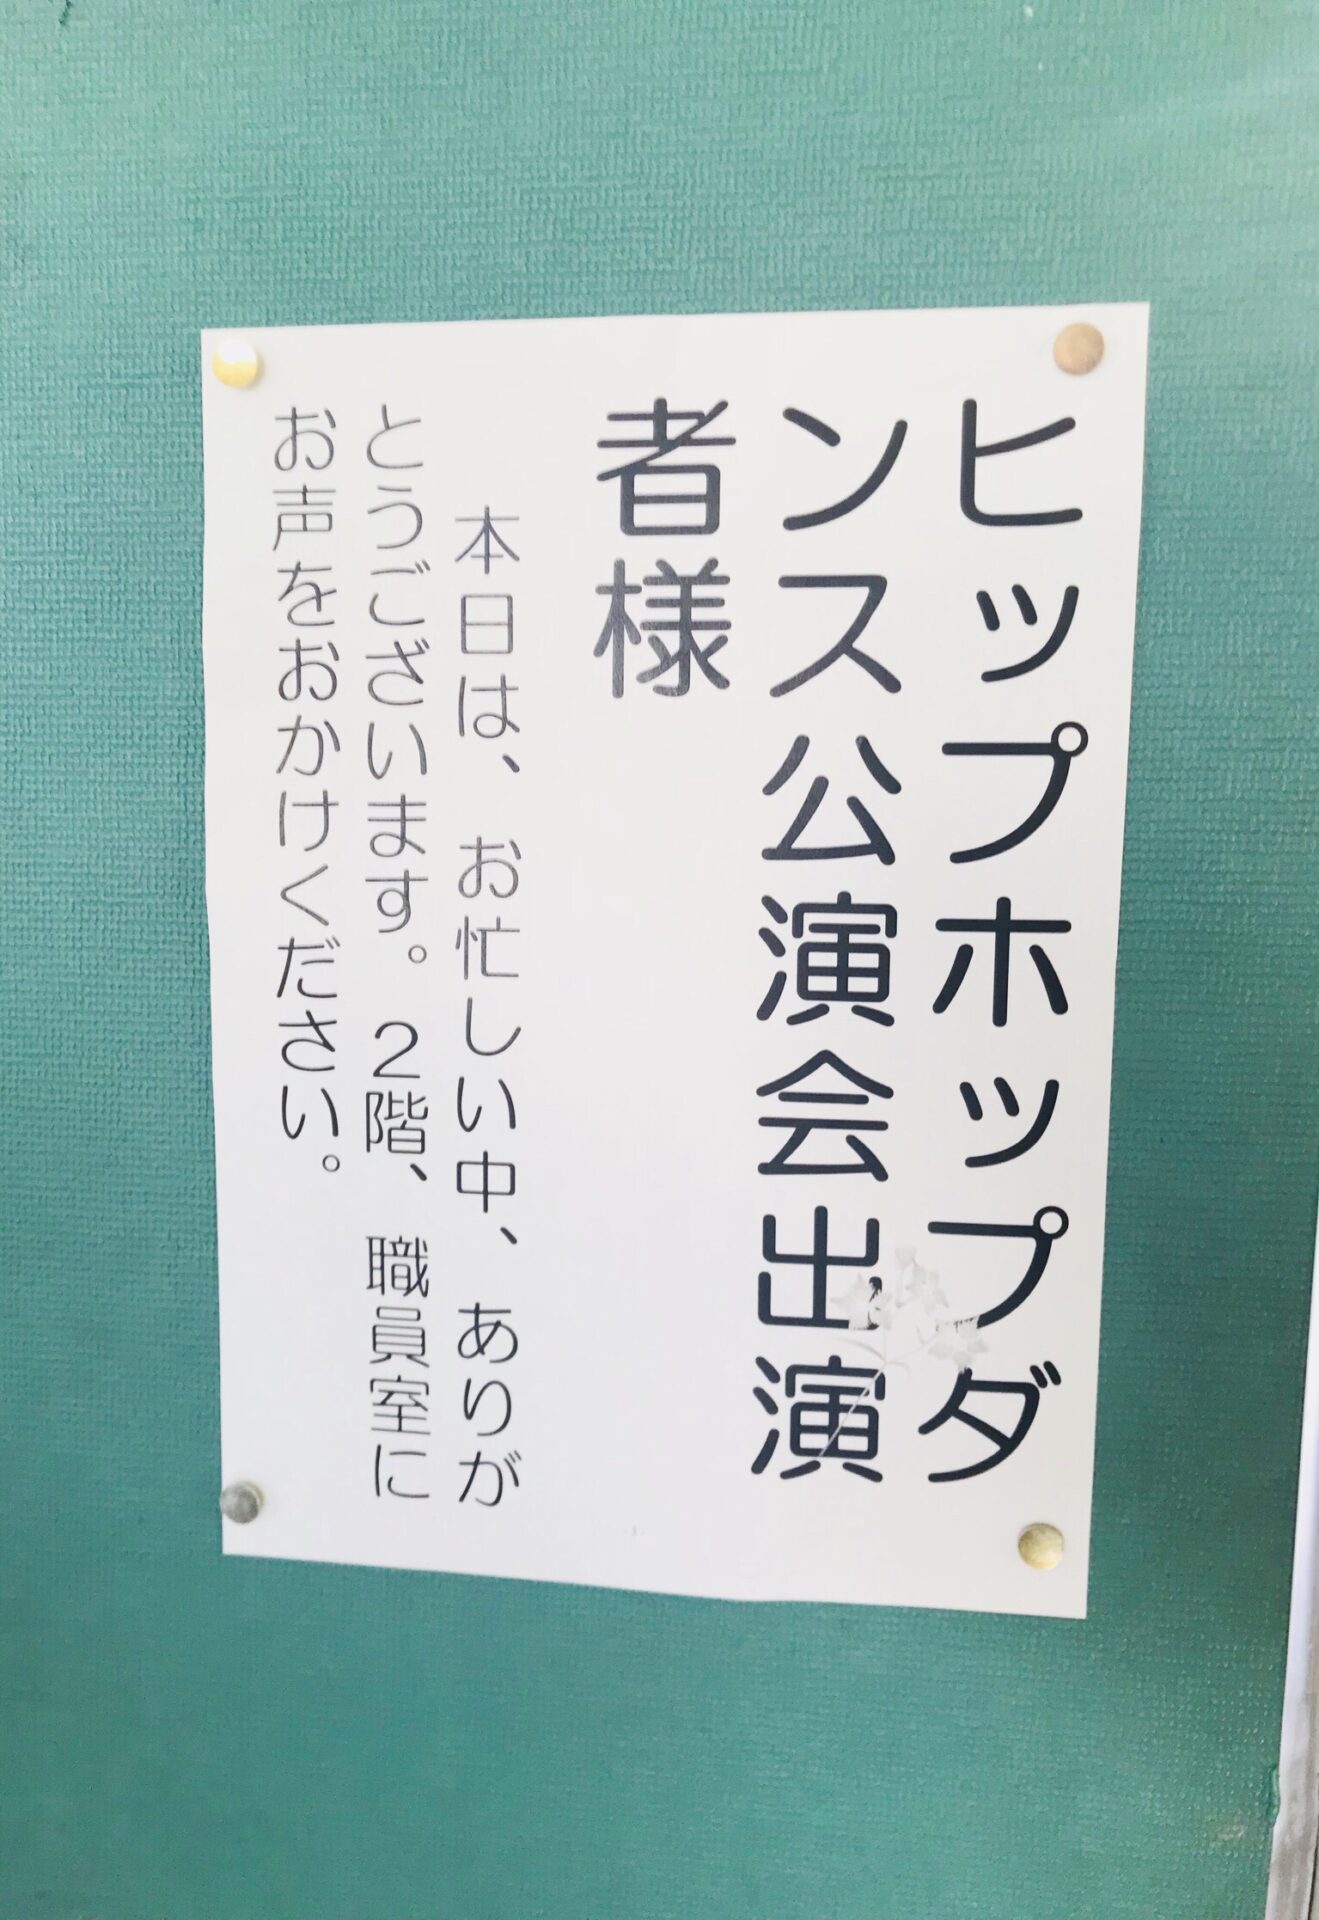 ヒップホップダ
ンス公演会出演
者様
本日は、お忙しい中、ありが
とうございます。２階、職員室に
お声をおかけください。